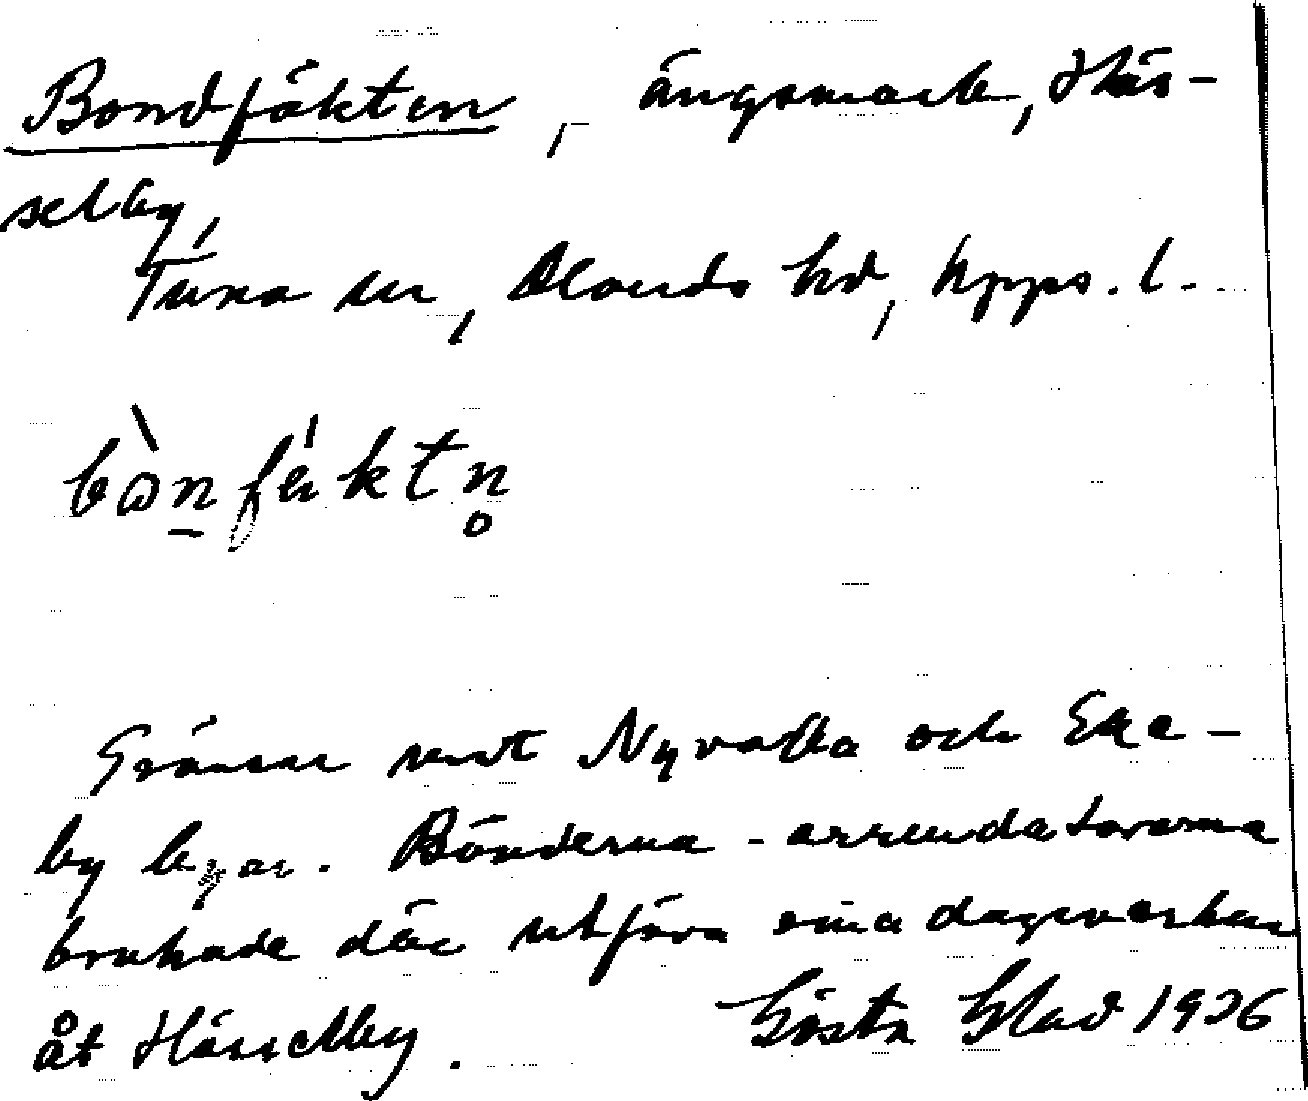 Bondfäkten, ängsmark, Häs-
selby,
Tuna sn, Olands hd, Upps. l.
bònfä́ktn̥
Gränsar mot Nyvalla och Eke-
by byar. Bönderna - arrendatorerna
brukade där utföra sina dagsverken
åt Hässelby. Gösta Blad 1936